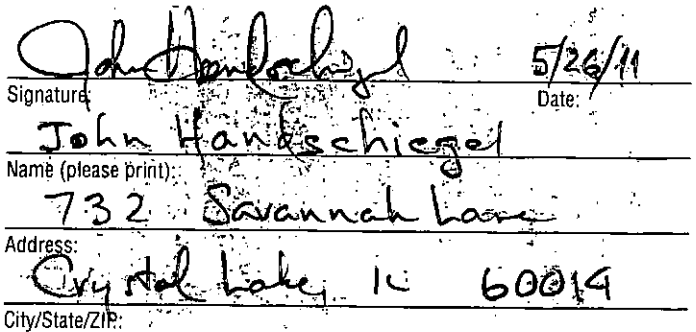 John Handschiegel 5/26/11
Signature: Date:
John Handschiegel
Name (please print):
732 Savannah Lane
Address:
Crystal Lake, IL 60014
City/State/ZIP: